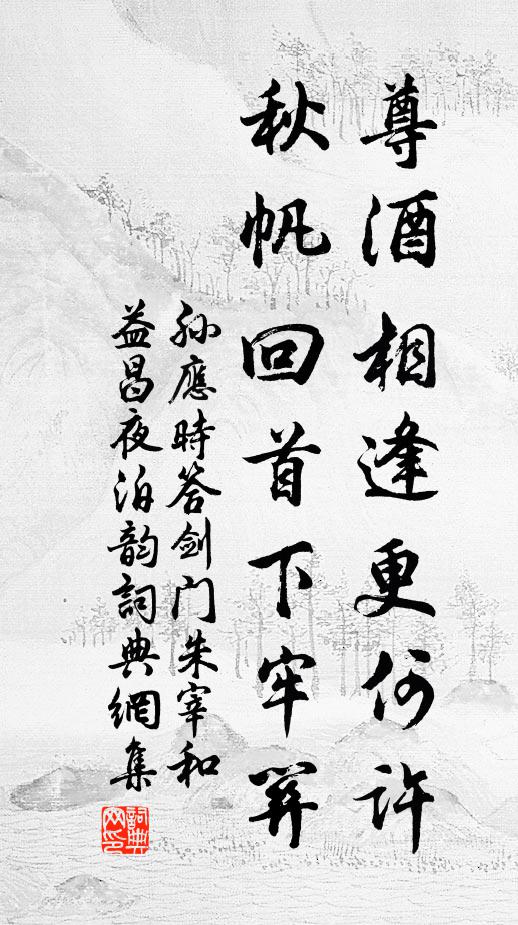 尊酒相逢更何許
秋帆回首下牢關
孫應時答劍门朱宰和
益昌夜泊韵詞典網集
詞典
网印